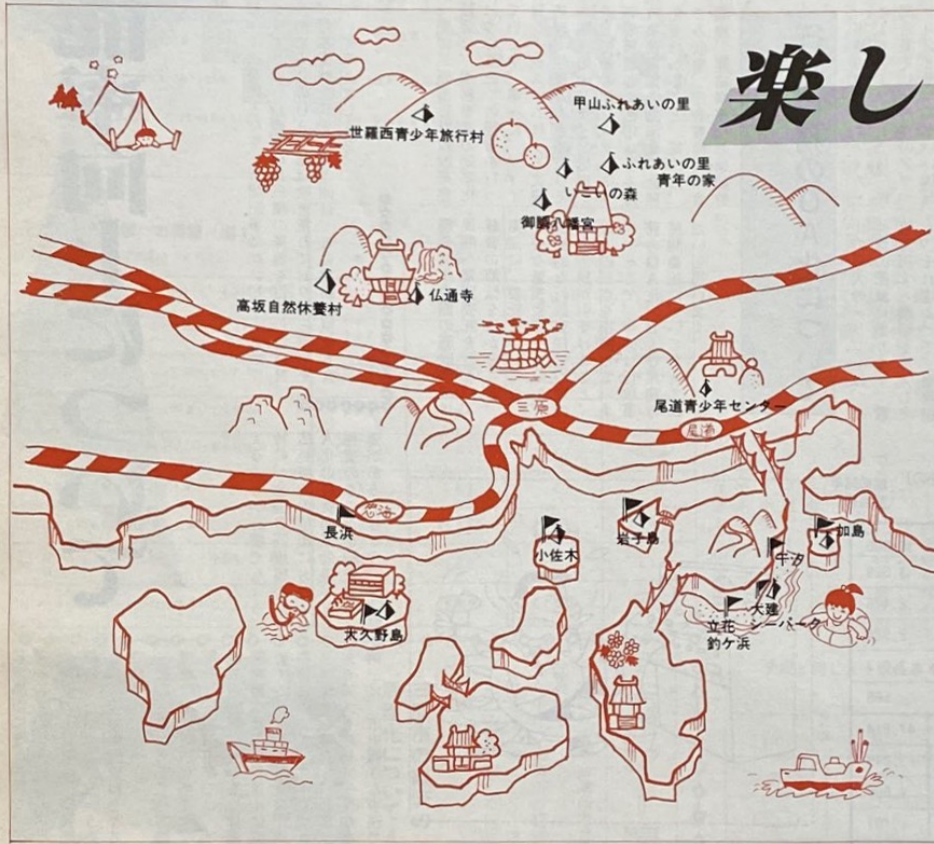 楽し
甲山ふれあいの里
世羅西青少年旅行村
ふれあいの里
青年の家
いこいの森
御調八幡宮
高坂自然休養村
仏通寺
三原
尾道青少年センター
尾道
忠海
長浜
小佐木
岩子島
加島
干汐
大久野島
大建
シーパーク
立花
釣ケ浜